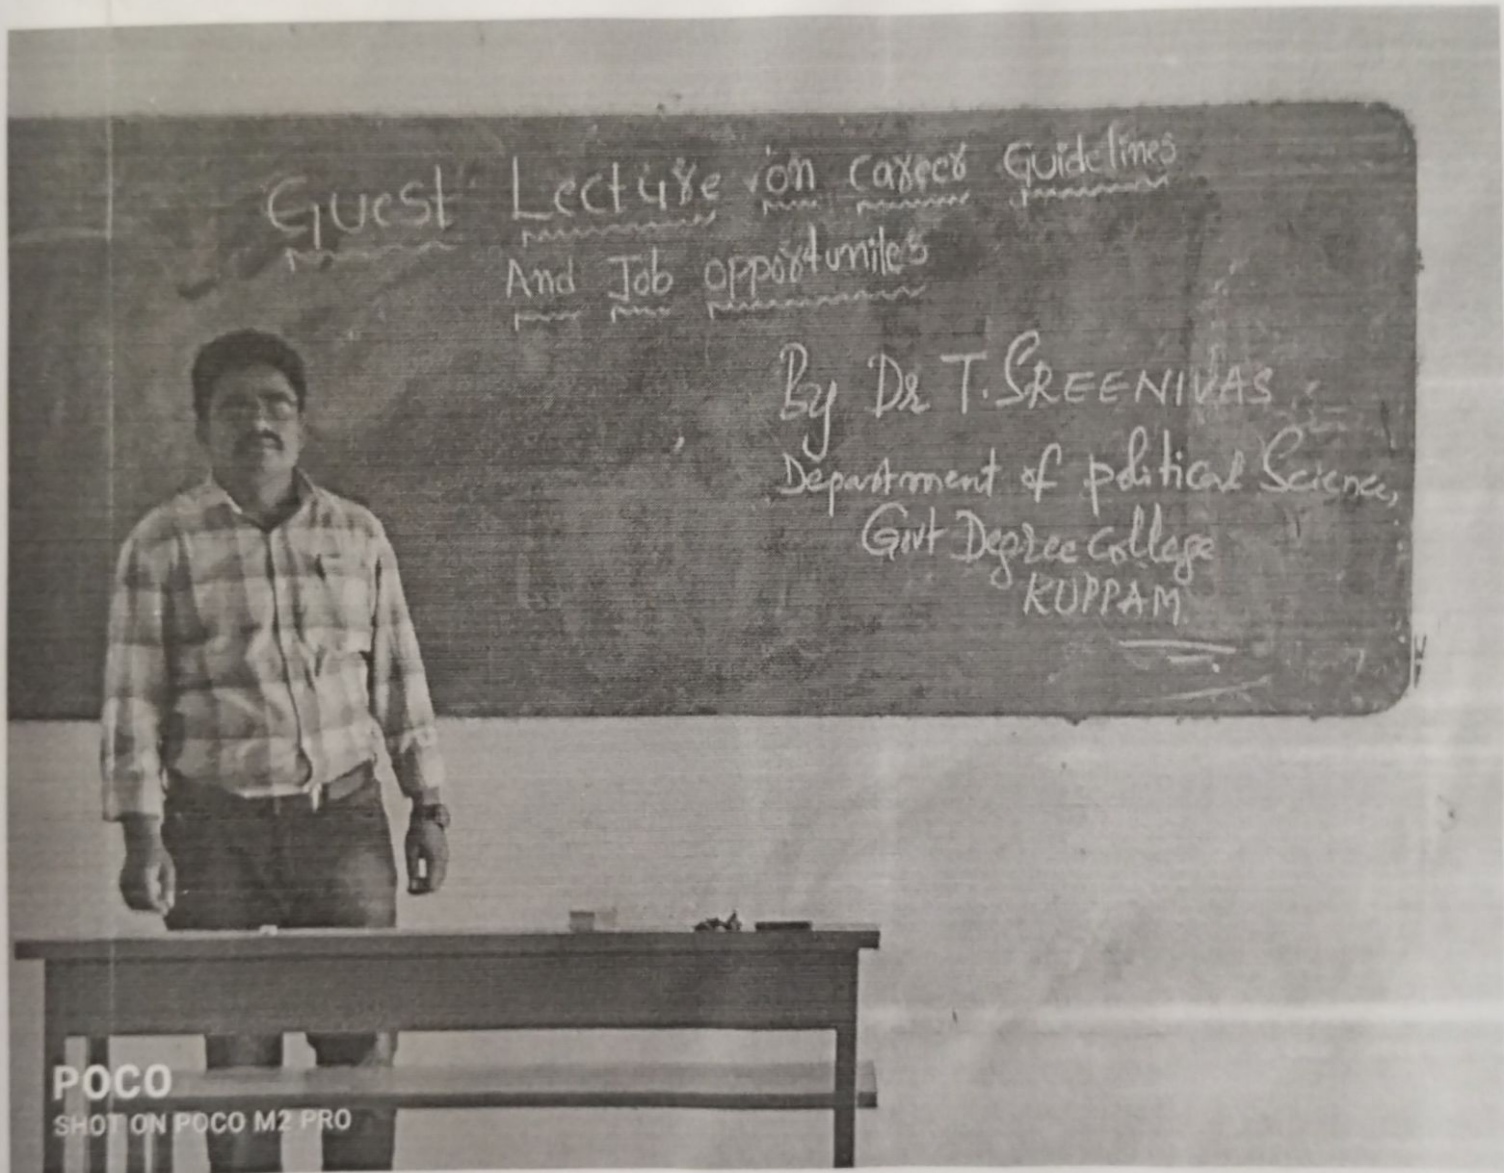 Guest Lecture on career Guidelines
And Job opportunites
By Dr T. SREENIVAS
Department of political Science,
Govt Degree college
KUPPAM
POCO
SHOT ON POCO M2 PRO